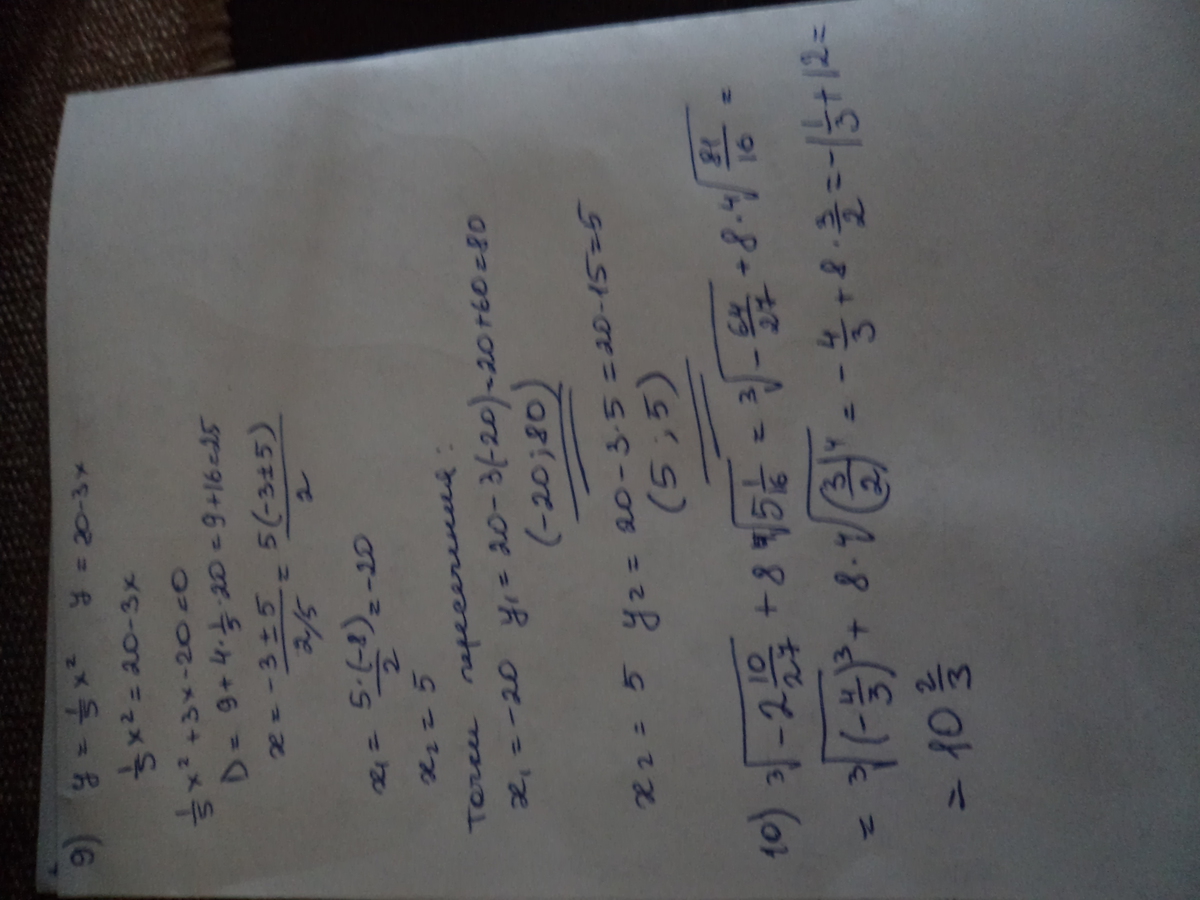 9) y = 1/5 x² y = 20-3x
1/5 x² = 20-3x
1/5 x² + 3x - 20 = 0
D = 9 + 4·1/5·20 = 9+16=25
x = (-3±5)/(2/5) = 5(-3±5)/2
x₁ = 5·(-8)/2 = -20
x₂ = 5
Точки пересечения:
x₁ = -20 y₁ = 20-3(-20)=20+60=80
(-20; 80)
x₂ = 5 y₂ = 20-3·5 = 20-15=5
(5 ; 5)
10) ³√(-2 10/27) + 8 ⁴√(5 1/16) = ³√(-64/27) + 8·⁴√(81/16) =
= ³√((-4/3)³) + 8·⁴√((3/2)⁴) = -4/3 + 8·3/2 = -1 1/3 + 12 =
= 10 2/3